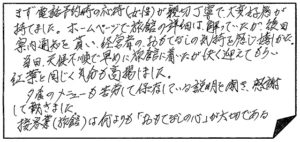 まず電話予約時の応待(女性)が親切丁寧で大変好感が
持てました。ホームページで旅館の詳細は解っていたが、後日
案内通知を頂い、経営者のおもてなしの気持を感じ嬉しかった。
当日、天候不順で早めに旅館に着いたが快く迎えてもらい
紅葉と同じく気分が高揚しました。
夕食のメニューも
説明を聞き、感謝
して頂きました。
接客業(旅館)は何よりも「おもてなしの心」が大切である